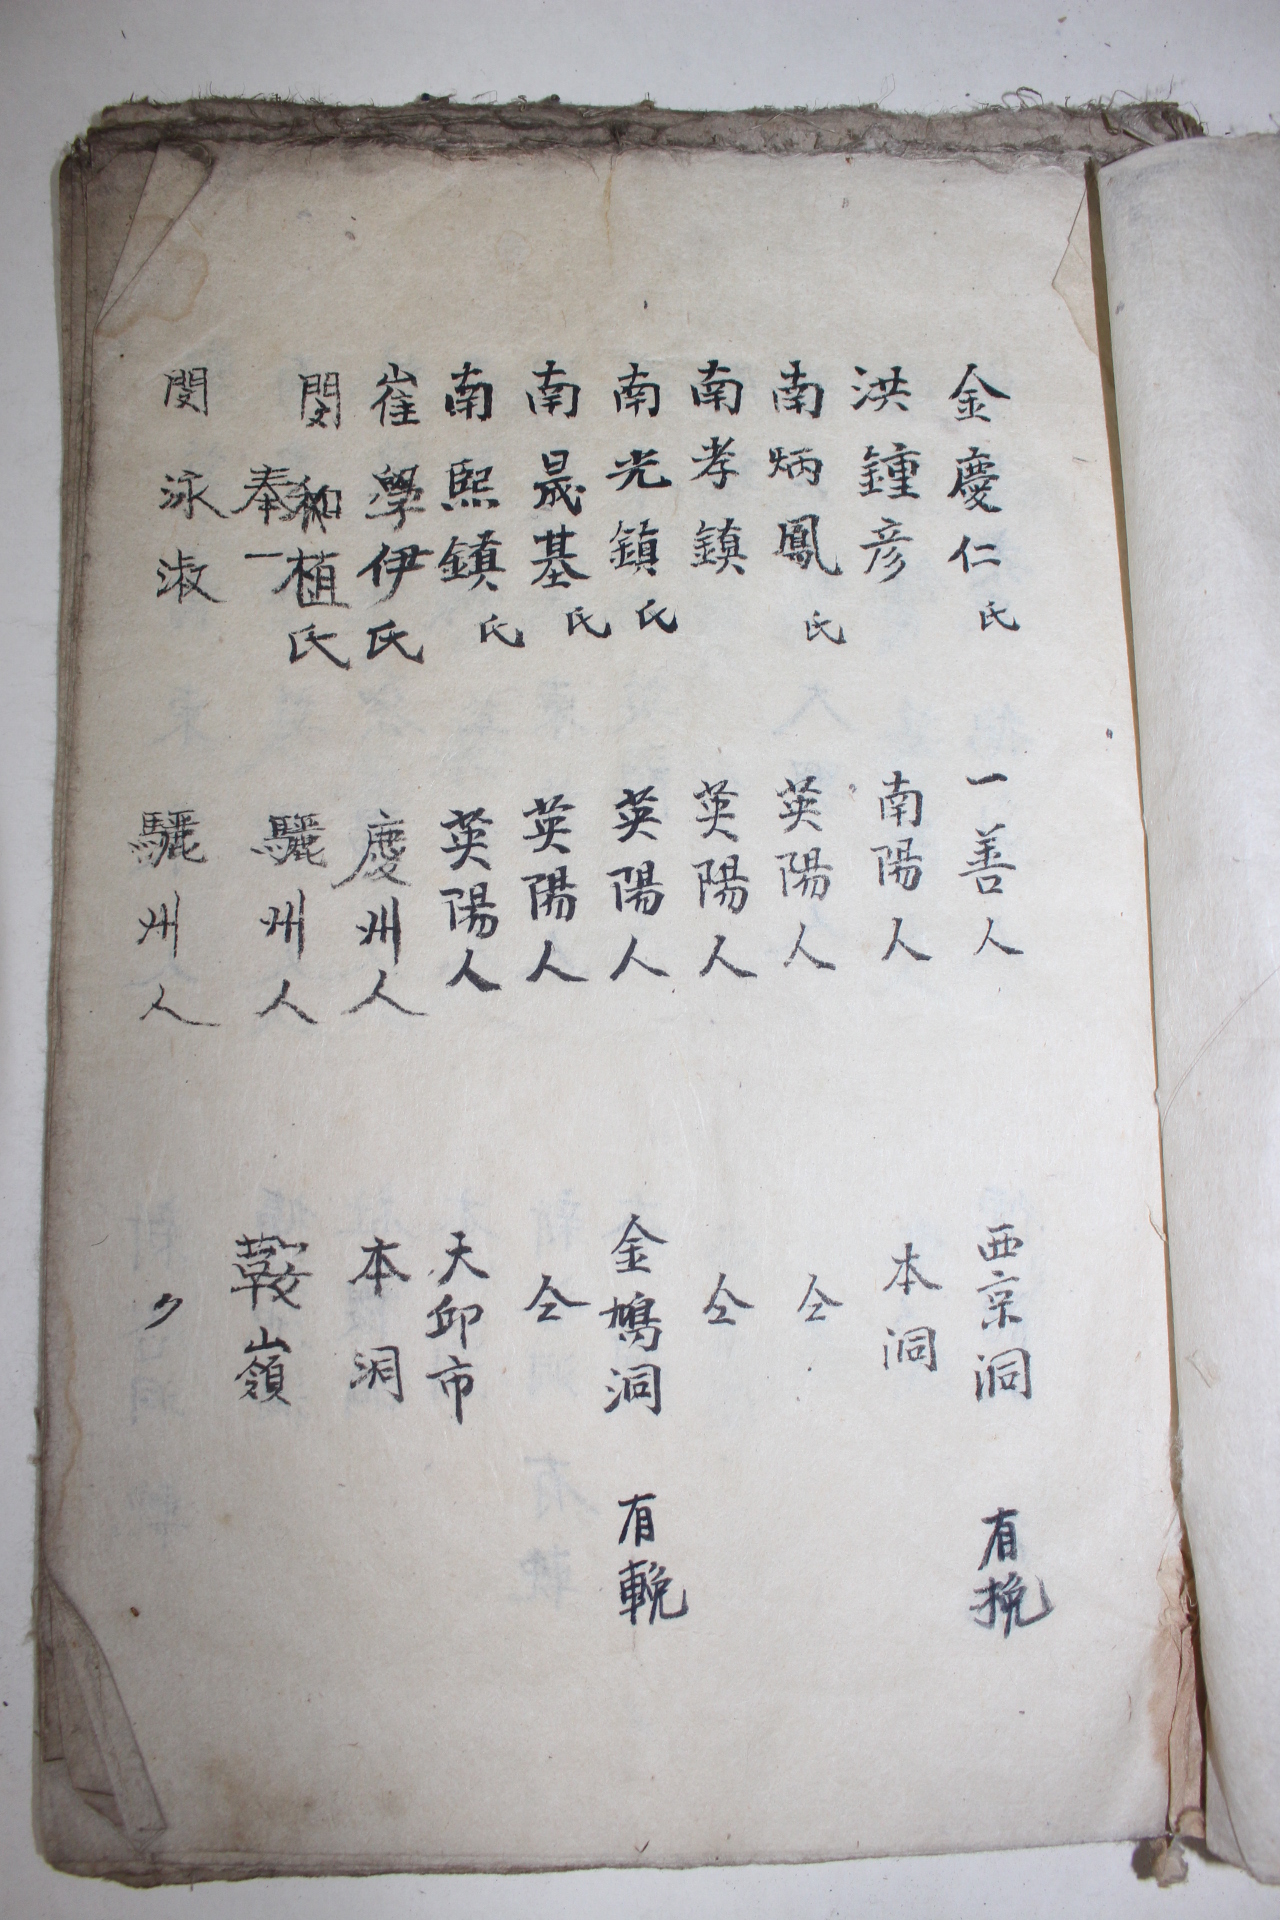 金慶仁氏 一善人 西京洞 有挽
洪鍾彦 南陽人 本洞
南炳鳳氏 英陽人 仝
南孝鎮 英陽人 仝
南光鎮氏 英陽人 金鳩洞 有輓
南晟基氏 英陽人 仝
南熙鎮氏 英陽人 天邱市
崔學伊氏 慶州人 本洞
閔 植氏 奉一 驪州人 鞍嶺
閔泳淑 驪州人 〃